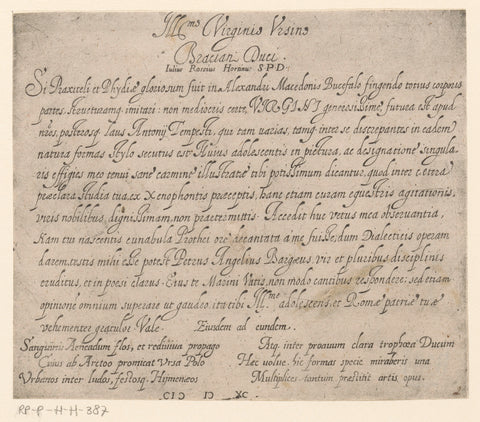 Illmo Virginio Vrsino
Braciani Duci.
Iulius Roscius Hortinus S.P.D.
Si Praxiteli et Phydiæ gloriosum fuit in Alexandri Macedonis Bucefalo fingendo totius corporis
partes, tamq imitari: non mediocris certe, VIRGINI generosissime, futura est apud
nros, posterosq laus Antonij Tempesti, qui tam varias, tamq inter se discrepantes in eadem
natura formas stylo secutus est. Huius adolescentis in pictura, ac designatione singula-
ris effigies meo tenui sane carmine illustratæ tibi potissimum dicantur, quod inter cetera
præclara studia tua, ex Xenophontis præceptis, hanc etiam curam equestris agitationis,
viris nobilibus dignissimam, non prætermittis. Accedit huc vetus mea observantia,
Nam cui nascentis cunabula Prothei ore decantata a me fuisse, dum Dialecticis operam
darem, testis mihi esse potest Petrus Angelius Bargæus, vir et pluribus disciplinis
eruditus, et in poesi clarus. Eius te Marini Vatis, non modo cantibus respondere: sed etiam
opinione omnium superare ut gaudeo, ita tibi Illme adolescens, et Romæ patriæ tuæ
vehementer gratulor. Vale. Eiusdem ad eundem.
Sanguinis Aeneadum flos, et rediviva propago
Cuius ab Arctoo promicat Vrsa Polo
Vrbanos inter ludos, festosq. Hijmenæos
Atq. inter proavum clara trophæa Ducum
Hæc volve. hic formas specie miraberis una
Multiplices. tantum præstitit artis opus.
CIƆ IƆ XC.
2
RP-P-H-H-387